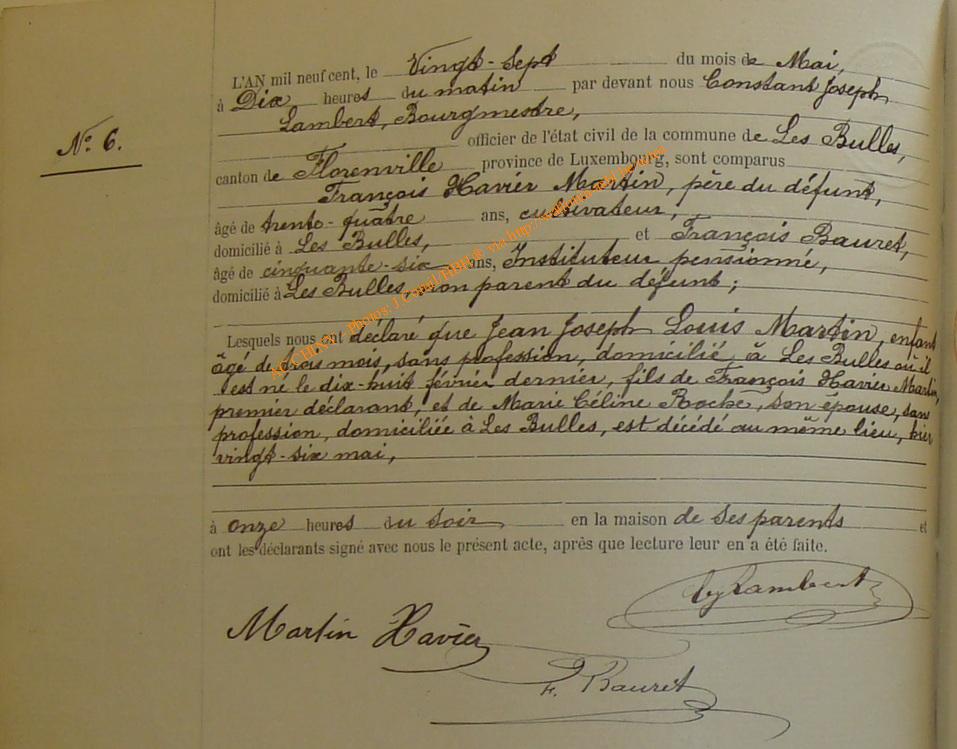 L'AN mil neuf cent, le Vingt-Sept du mois de Mai,
à Dix heures du matin par devant nous Constant Joseph
Lambert, Bourgmestre,
N° 6.
officier de l'état civil de la commune de Les Bulles,
canton de Florenville province de Luxembourg, sont comparus
François Xavier Martin, père du défunt,
âgé de trente-quatre ans, cultivateur,
domicilié à Les Bulles, et François Bauret,
âgé de cinquante-six ans, Instituteur pensionné,
domicilié à Les Bulles, non parent du défunt;
Lesquels nous ont déclaré que Jean Joseph Louis Martin, enfant
âgé de trois mois, sans profession, domicilié à Les Bulles où il
est né le dix-huit février dernier, fils de François Xavier Martin,
premier déclarant, et de Marie Céline Roche, son épouse, san
profession, domiciliée à Les Bulles, est décédé au même lieu, hier
vingt-six mai,
à onze heures du soir en la maison de ses parents et
ont les déclarants signé avec nous le présent acte, après que lecture leur en a été faite.
Lambert
Martin Xavier
F. Bauret
photos J.
via http://